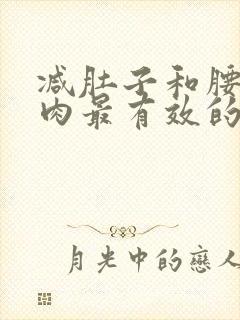 减肚子和腰
肉最有效的
月光中的戀人